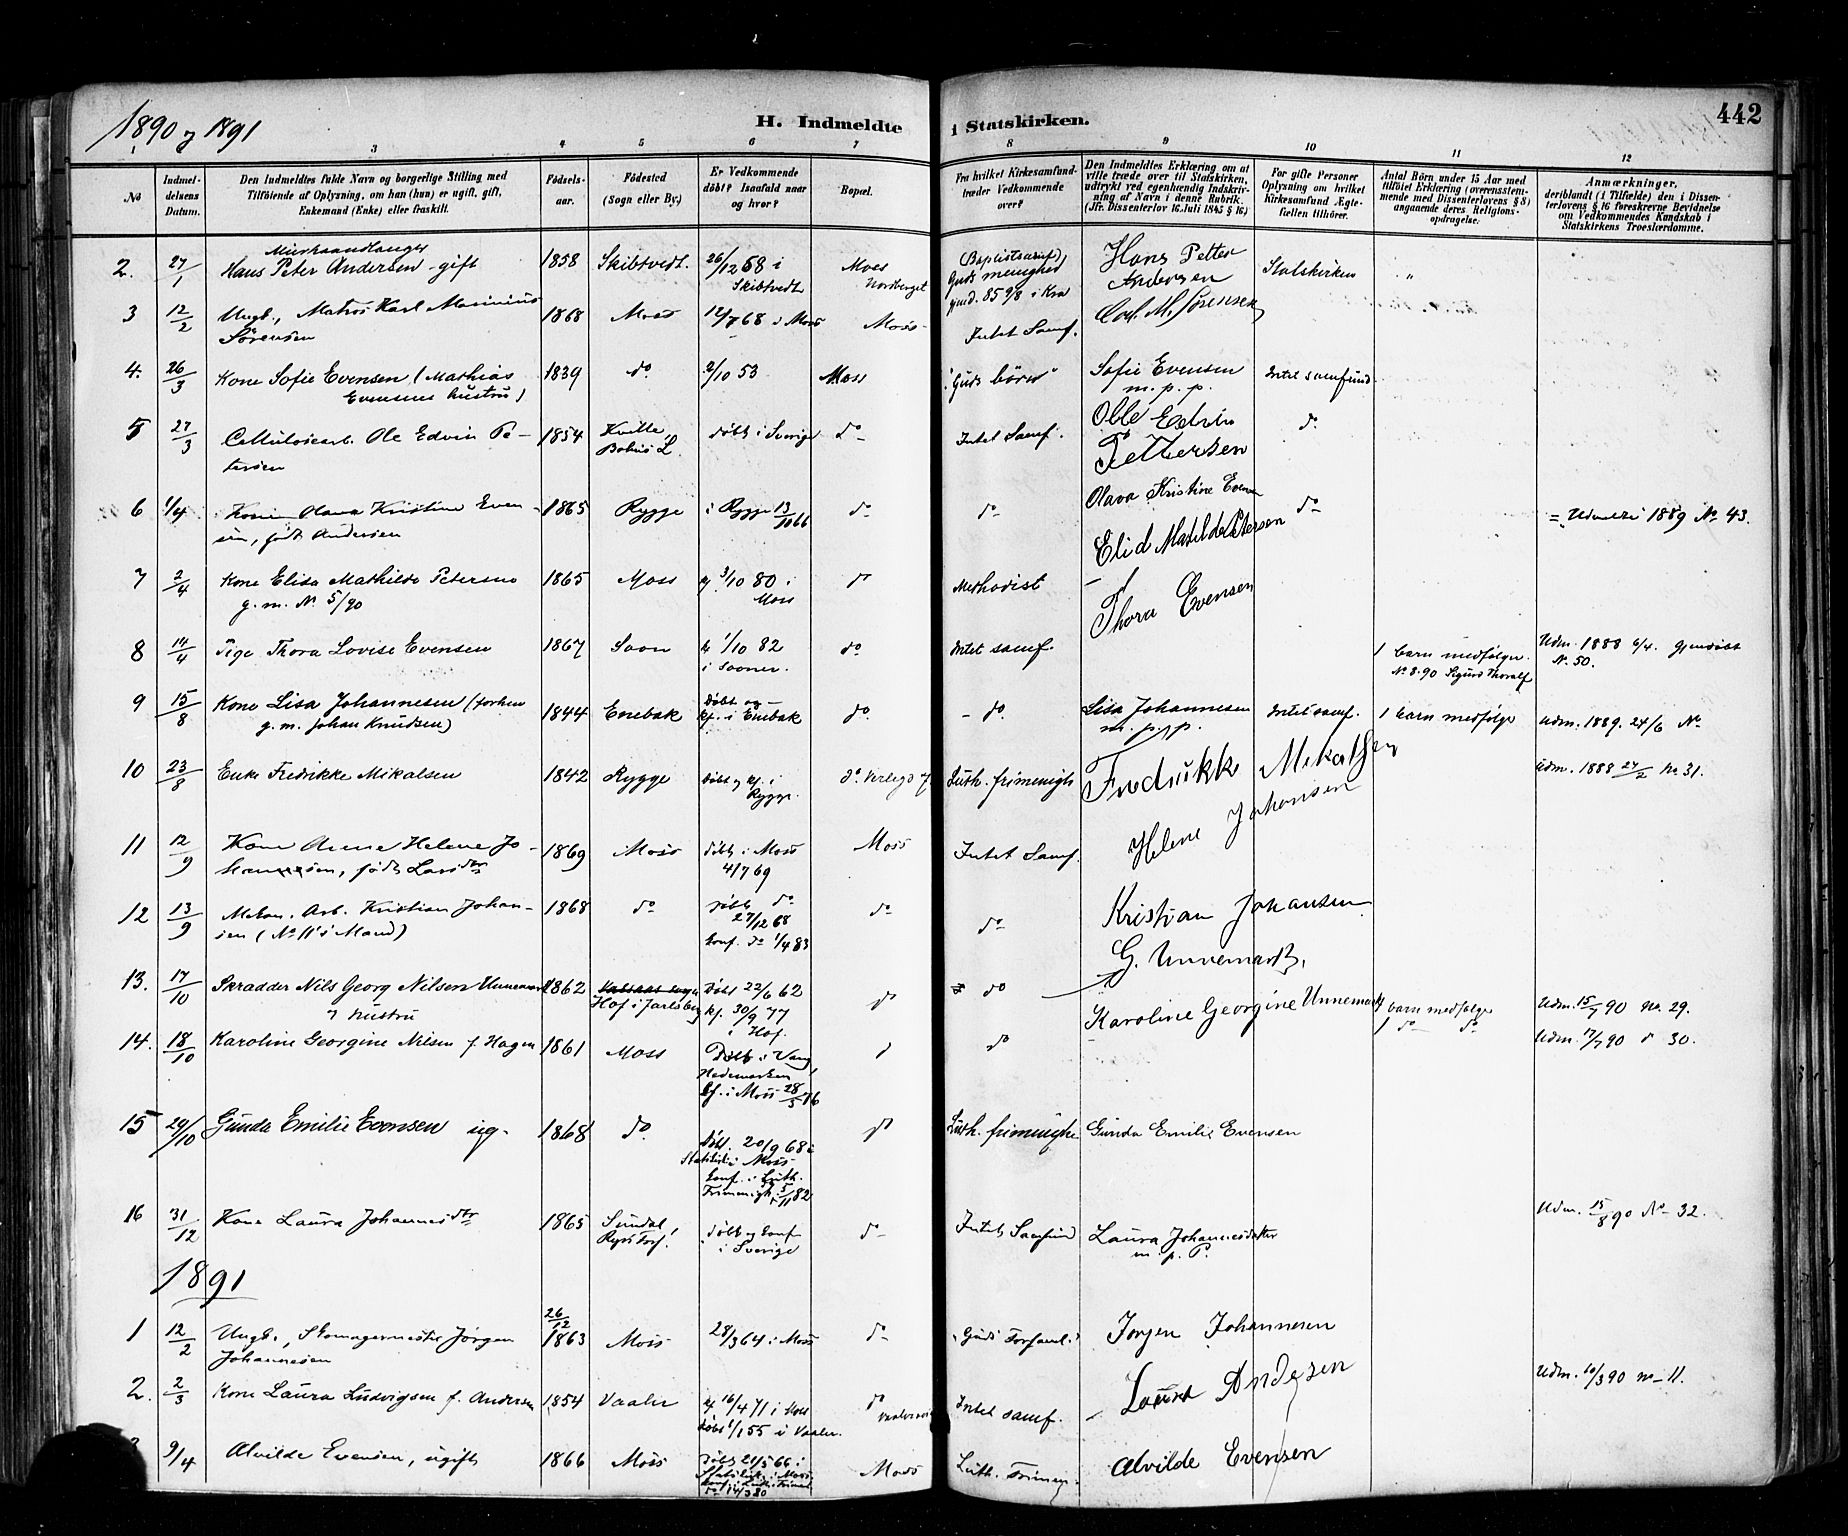 1890 og 1891
H. Indmeldte i Statskirken.
442
3 4 5 6 7 8 9 10 11 12
No
Indmeldelsens Datum.
Den Indmeldtes fulde Navn og borgerlige Stilling med Tilføiende af Oplysning, om han (hun) er ugift, gift, Enkemand (Enke) eller fraskilt.
Fødselsaar.
Fødested (Sogn eller By.)
Er Vedkommende døbt? Isaafald naar og hvor?
Bopæl.
Fra hvilket Kirkesamfund træder Vedkommende over?
Den Indmeldtes Erklæring om at ville træde over til Statskirken, udtrykt ved egenhændig Indskrivning af Navn i denne Rubrik. (Jfr. Dissenterlov 16 Juli 1845 § 16.)
For gifte Personer Oplysning om hvilket Kirkesamfund Ægtefællen tilhører.
Antal Børn under 15 Aar med tilføiet Erklæring (overensstemmende med Dissenterlovens § 8) angaaende deres Religionsopdragelse.
Anmærkninger, deriblandt (i Tilfælde) den i Dissenterlovens § 16 foreskrevne Bevidnelse om Vedkommendes Kundskab i Statskirkens Troeslærdomme.
2. 27/1 Murhaandlanger Hans Peter Andersen - gift 1858 Skibtvedt. 26/12 58 i Skibtvedt Moss (Baptistsamf) Guds menighed 85 9/8 i Kra Hans Petter Andersen Statskirken "
3 12/2 Ungk., Matros Karl Marinius Sørensen 1868 Moss 12/7 68 i Moss Moss Intet Samf. Carl M. Sørensen
4. 26/3 Kone Sofie Evensen (Mathias Evensens hustru) 1839 do 2/10 53 Moss "Guds børn" Sofie Evensen m. p. p. Intet samfund
5 27/3 Cellulosearb. Ole Edvin Petersen 1854 Kville Bohus L. døbt i Sverige Do Intet Samf. Olle Edvin Pettersen do
6 1/4 Kone Olava Kristine Evensen, født Andersen 1865 Rygge i Rygge 13/10 66 do do Olava Kristine Evensen do = Udmeldt 1889 No 43.
7 2/4 Kone Elisa Mathilde Petersen g. m. No 5/90 1865 Moss 3/10 80 i Moss do Methodist Elid Matilde Petersen
8 14/4 Pige Thora Lovise Evensen 1867 Soon 1/10 82 i Sooner. do Intet samf. Thora Evensen 1 barn medfølger. No 8. 90 Sigurd Thoralf Udm. 1888 6/4. No. 50.
9 15/8 Kone Lisa Johannesen (forhen g. m. Johan Knudsen) 1844 Enebak Døbt og kf. i Enebak do. - do. Lisa Johannesen m. p. p. Intet samf. 1 barn medfølger Udm. 1889. 24/6 No
10 23/8 Enke Fredrikke Mikalsen 1842 Rygge Døbt og kf. i Rygge. do. Luth. frimenigh Fredrikke Mekalsen Udm. 1888 27/2 No 31.
11 12/9 Kone Anne Helene Johannesen, født Larsdtr 1869 Moss døbt i Moss 4/7 69 Moss Intet Samf. Helene Johansen
12 13/9 Mekan. Arb. Kristian Johansen (No 11's Mand) 1868 do døbt do 27/12 68 konf. do 1/4 83 do do Kristian Johansen
13. 17/10 Skrædder Nils Georg Nilsen Unnemark og hustru 1862 Hof i Jarlsberg Døbt 22/6 62 kf. 30/9 77 i Hof. do do G. Unnemark, 1 barn medfølger Udm. 15/7 90 no. 29.
14. 18/10 Karoline Georgine Nilsen f. Hagen 1861 Moss Døbt i Vang Hedemarken kf. i Moss 28/5 76 do do Karoline Georgine Unnemark 1 do do Udm. 17/7 90 do 30.
15 29/10 Gunda Emilie Evensen ug. 1868 do. Døbt. 20/9 68 i Statsk. i Moss konf. i Luth. Frimenigh. 5/11 82 do Luth. frimenighe Gunda Emilie Evensen
16 31/12 Kone Laura Johannesdtr 1865 Sundal, Ryrs Fors. døbt og konf i Sverige do Intet Samfund Laura Johannesdatter m. p. P. Udm. 15/8 90 No 32.
1891
1 12/2 Ungk., Skomagermester Jørgen Johannesen 26/12 1863 Moss 28/3 64 i Moss do "Guds Forsaml." Jørgen Johannesen
2. 2/3 Kone Laura Ludvigsen f. Andersen 1854 Vaaler 16/4 71 i Moss døbt 1/1 55 i Vaaler. do Intet samf. Laura Andersen Udm. 10/3 90 no 11.
9/4 Alvilde Evensen, ugift 1866 Moss Døbt 21/5 66 i Statsk. i Moss konf. i Luth. Frimen. do 14/3 80 Moss Luth. Frimen. Alvilde Evensen